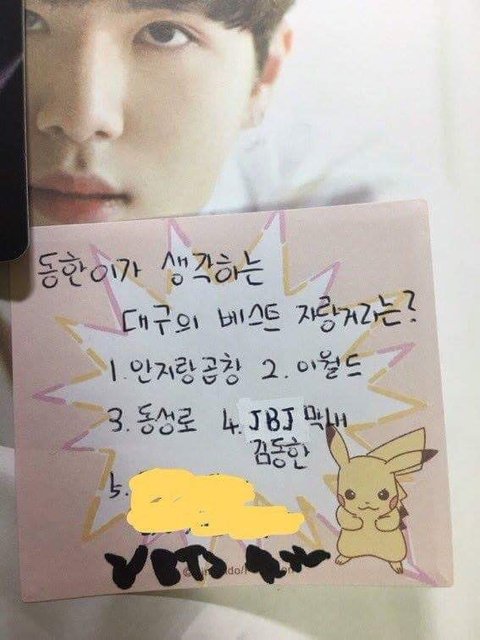 동한이가 생각하는
대구의 베스트 자랑거리는?
1. 안지랑곱창 2. 이월드
3. 동성로 4. JBJ 막내
김동한
5.
V BTS